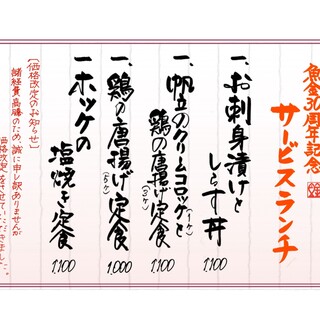 魚金30周年記念
サービスランチ
一、お刺身漬けと
しらす丼
1,100
一、帆立のクリームコロッケと(1ヶ)
鶏の唐揚げ定食(3ヶ)
1,100
一、鶏の唐揚げ定食(5ヶ)
1,000
一ホッケの
塩焼き定食
1,100
[価格改定のお知らせ]
諸経費高騰のため、誠に申し訳ありませんが
価格改定をさせていただきました。